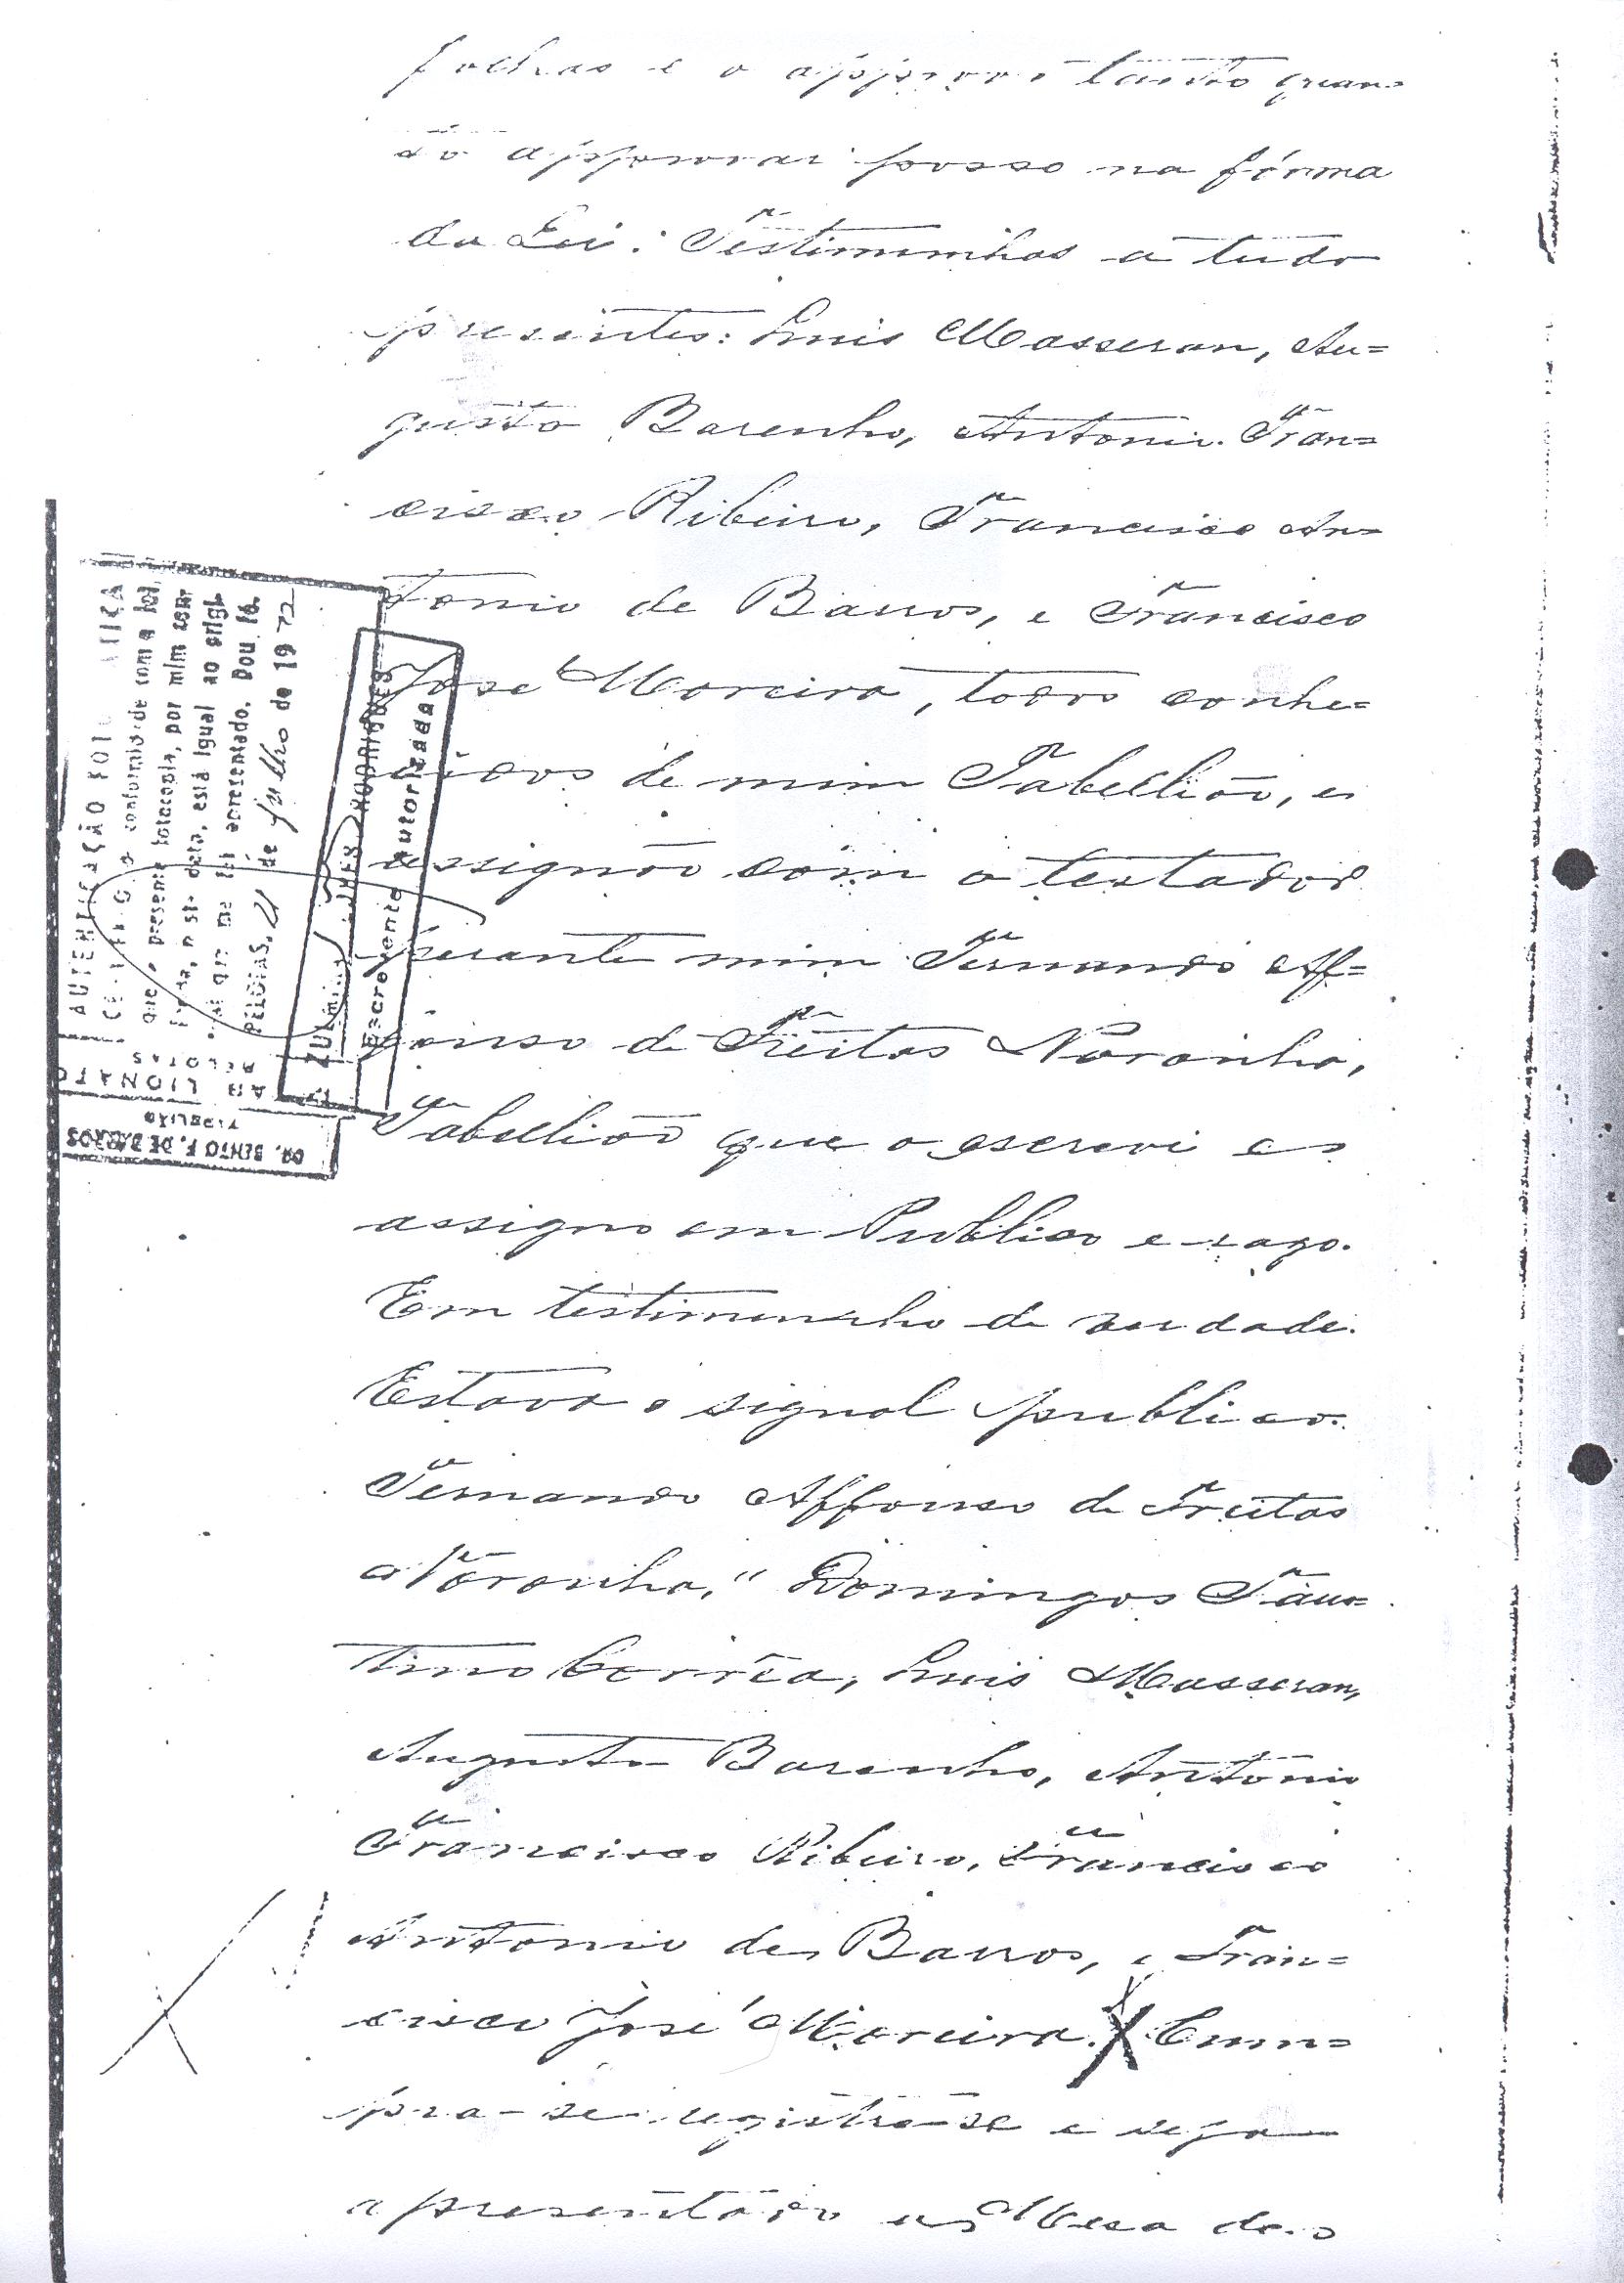 folhas e o approvo tanto quan-
to approvar posso na fórma
da Lei: Testimunhas a tudo
presentes: Luis Masseran, Au=
gusto Barenho, Antonio Fran=
cisco Ribeiro, Francisco An=
tonio de Barros, e Francisco
José Moreira, todos conhe=
cidos de mim Tabellião, e
assignão com o testador
perante mim Fernando Af=
fonso de Freitas Noronha,
Tabellião que o escrevi e
assigno em Publico e razo.
Em testimunho de verdade.
Estava o signal publico.
Fernando Affonso de Freitas
Noronha," Domingos Faus=
tino Corrêa, Luis Masseran,
Augusto Barenho, Antonio
Francisco Ribeiro, Francisco
Antonio de Barros, e Fran=
cisco José Moreira. Cum=
pra-se registre-se e seja
apresentado na Mesa de
AUTENTICAÇÃO
conformidade com a lei,
que a presente fotocopia, por mim con-
data, está igual ao origi-
nal que me foi apresentado. Dou fé.
PELOTAS, 21 de julho de 1972
RODRIGUES
Escrevente Autorizada
PELOTAS
TABELIÃO
DR. BENTO F. DE BARROS